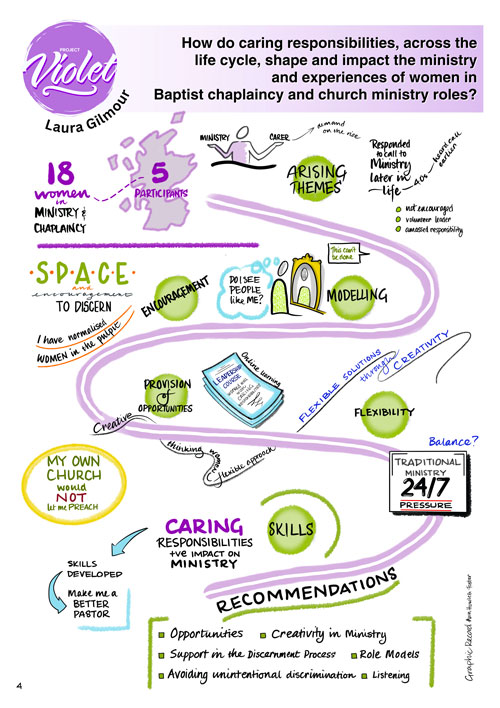 PROJECT
Violet
Laura Gilmour
How do caring responsibilities, across the
life cycle, shape and impact the ministry
and experiences of women in
Baptist chaplaincy and church ministry roles?
18
women
in
MINISTRY &
CHAPLAINCY
5
PARTICIPANTS
MINISTRY
CARER
demand
on the rise
ARISING
THEMES
Responded
to call to
Ministry
later in
life
40s
heard call
earlier
not encouraged
volunteer leader
canassed responsibility
S.P.A.C.E
and
encouragement
TO DISCERN
I have normalised
WOMEN in the pulpit
ENCOURAGEMENT
DO I SEE
PEOPLE
LIKE ME?
This can't
be done
MODELLING
PROVISION
of
OPPORTUNITIES
LEADERSHIP
COURSE
Online learning
Creative
thinking
Flexible approach
FLEXIBLE SOLUTIONS
through
CREATIVITY
FLEXIBILITY
Balance?
TRADITIONAL
MINISTRY
24/7
PRESSURE
MY OWN
CHURCH
would
NOT
let me PREACH
CARING
RESPONSIBILITIES
+ve IMPACT ON
MINISTRY
SKILLS
SKILLS
DEVELOPED
Make me a
BETTER
PASTOR
RECOMMENDATIONS
Opportunities
Creativity in Ministry
Support in the Discernment Process
Role Models
Avoiding unintentional discrimination
Listening
Graphic Record
4